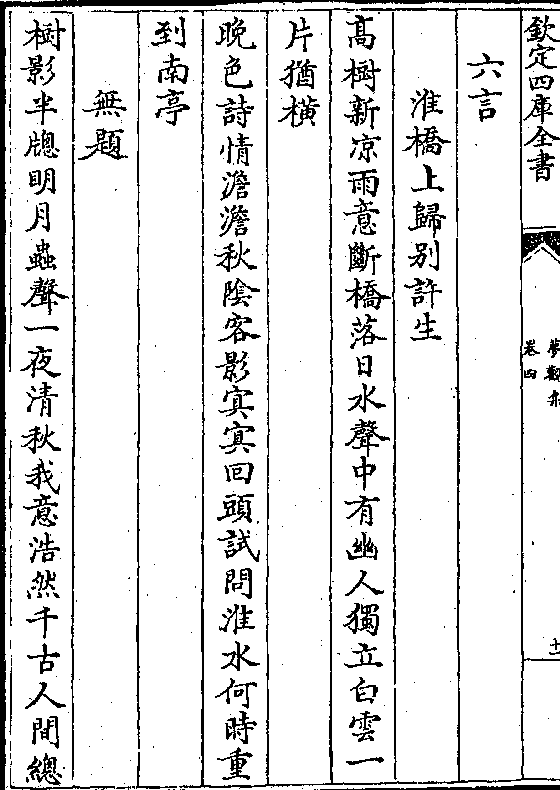 欽定四庫全書
卷四
六言
淮橋上歸别許生
髙樹新凉雨意斷橋落日水聲中有幽人獨立白雲一
片猶横
晚色詩情澹澹秋陰客影㝠㝠回頭試問淮水何時重
到南亭
無題
樹影半牕明月蟲聲一夜清秋我意浩然千古人間總